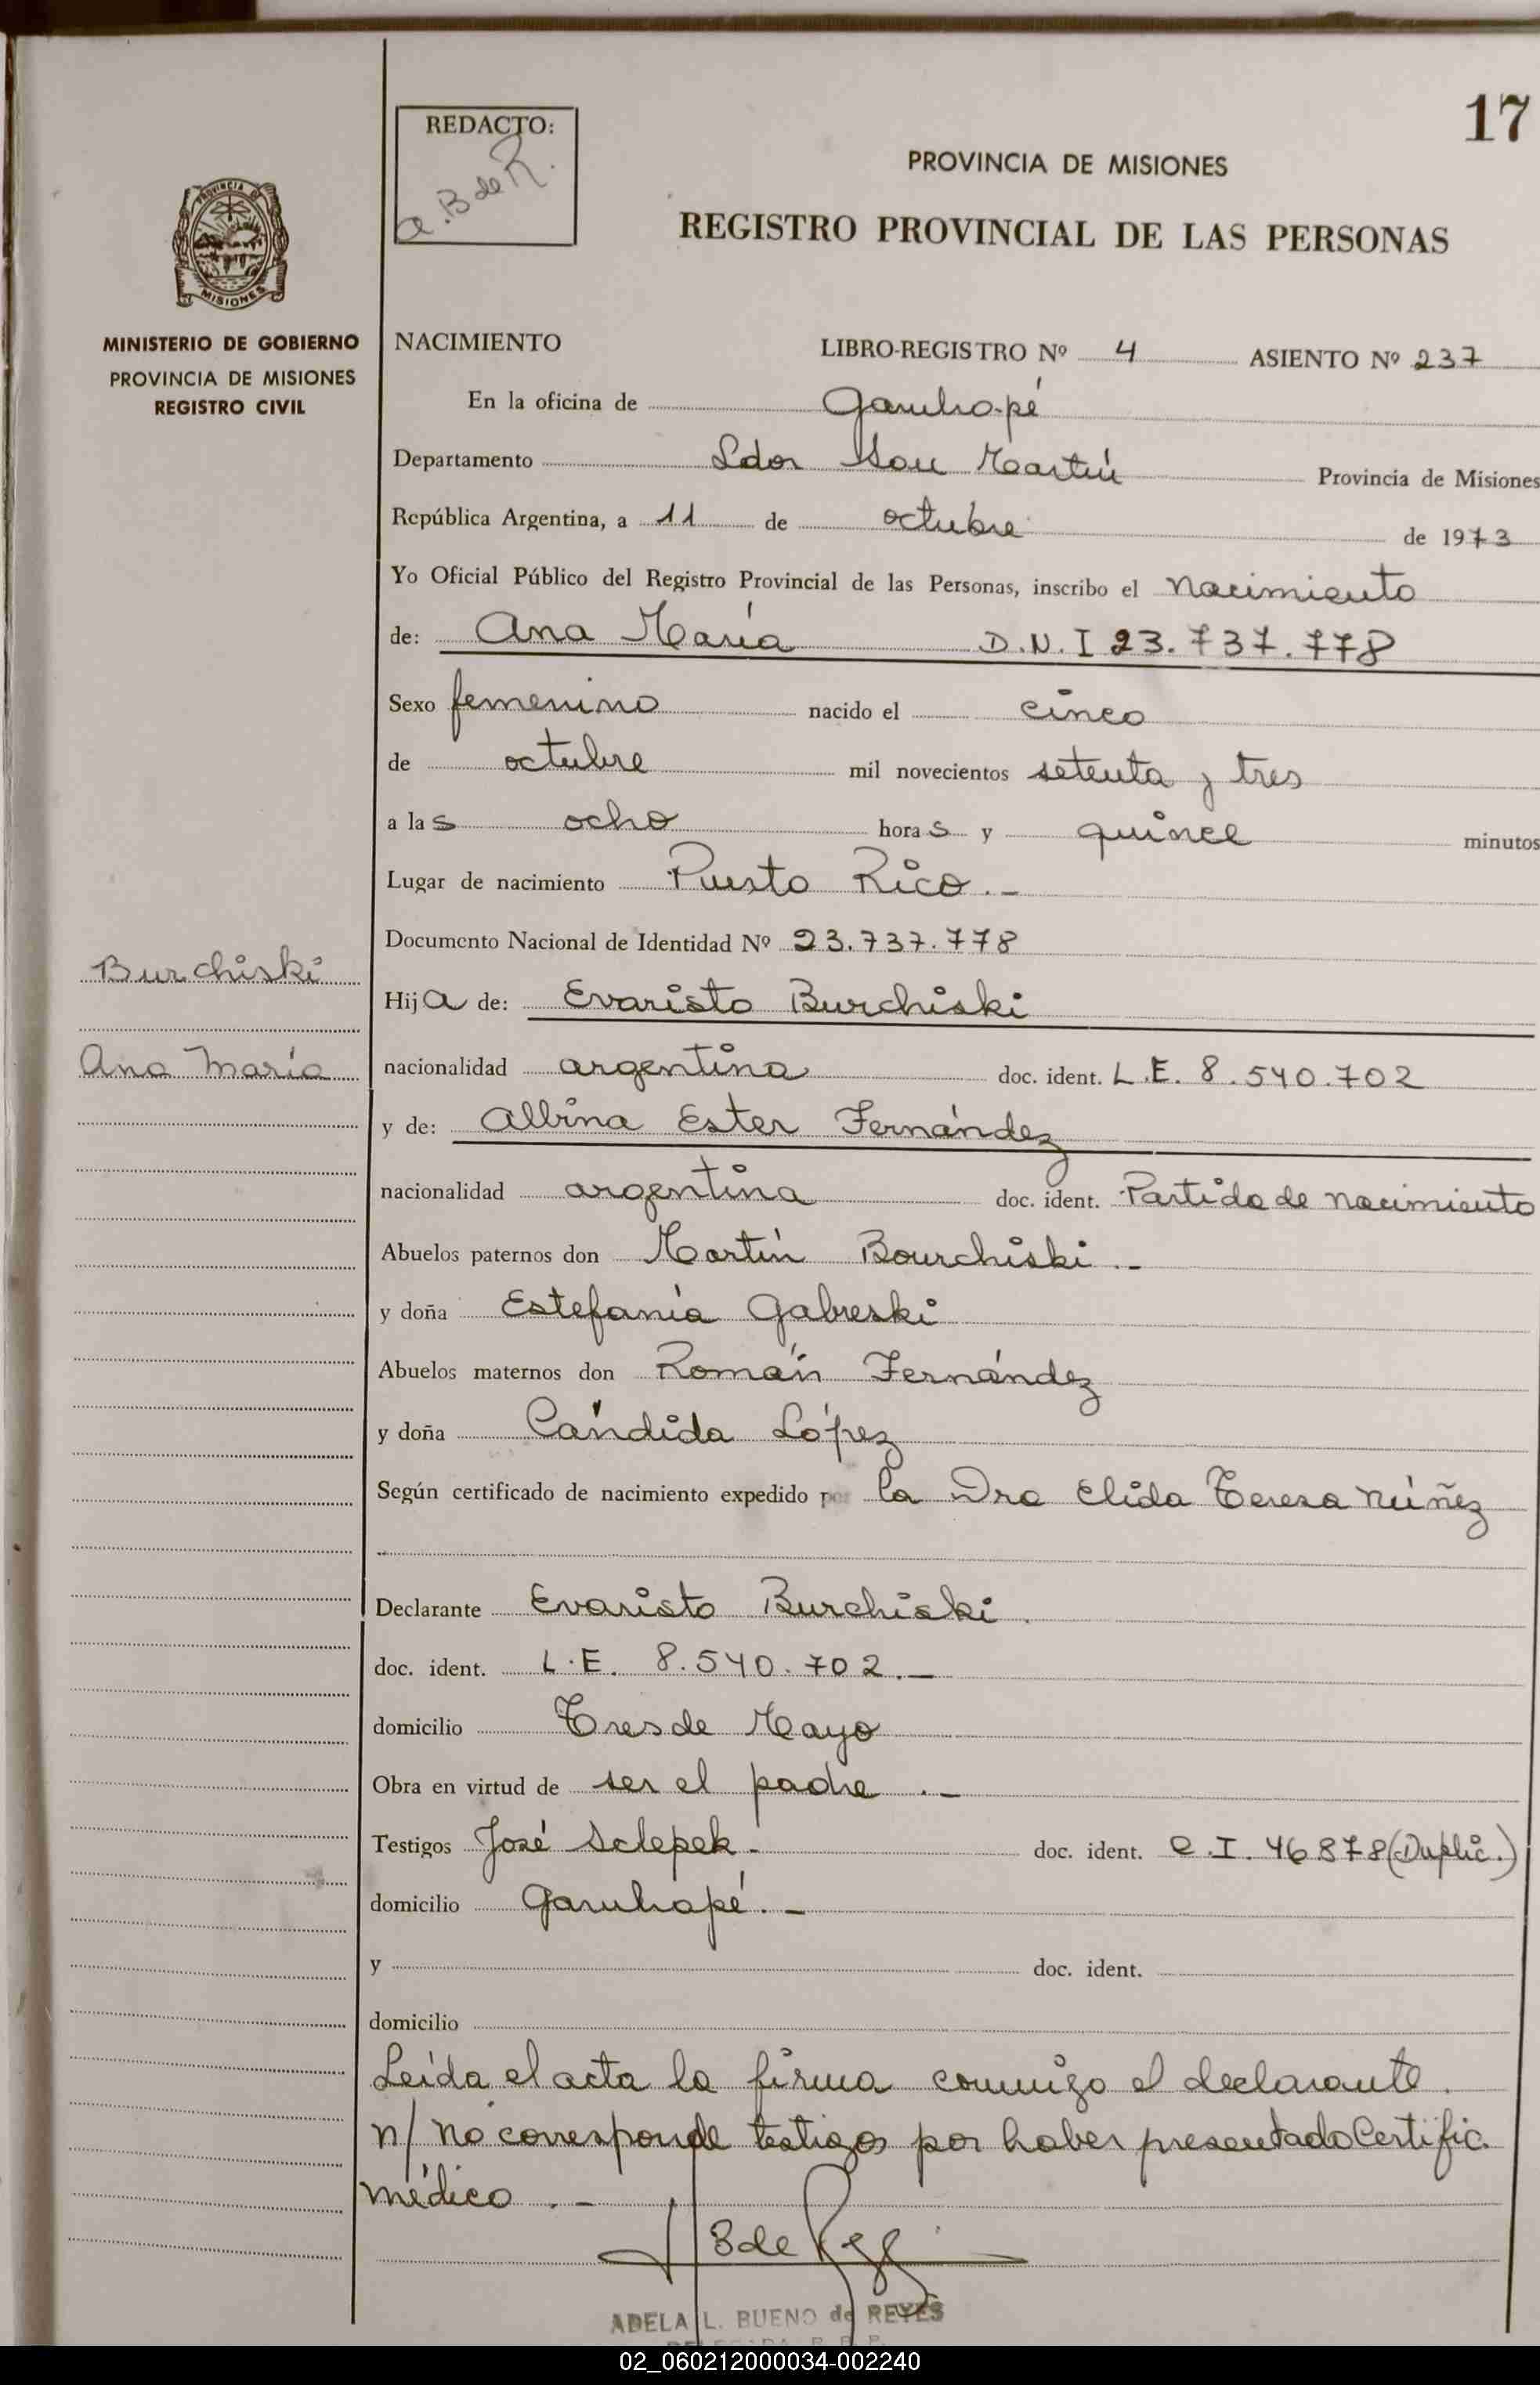 17
REDACTO:
a. B de R.
PROVINCIA DE MISIONES
REGISTRO PROVINCIAL DE LAS PERSONAS
PROVINCIA DE
MISIONES
MINISTERIO DE GOBIERNO
PROVINCIA DE MISIONES
REGISTRO CIVIL
NACIMIENTO LIBRO-REGISTRO Nº 4 ASIENTO Nº 237
En la oficina de Garuhapé
Departamento Ldor San Martín Provincia de Misiones
República Argentina, a 11 de octubre de 1973
Yo Oficial Público del Registro Provincial de las Personas, inscribo el nacimiento
de: Ana María D.N.I 23.737.778
Sexo femenino nacido el cinco
de octubre mil novecientos setenta y tres
a las ocho horas y quince minutos
Lugar de nacimiento Puerto Rico.-
Documento Nacional de Identidad Nº 23.737.778
Burchiski
Hija de: Evaristo Burchiski
Ana María
nacionalidad argentina doc. ident. L.E. 8.540.702
y de: Albina Ester Fernández
nacionalidad argentina doc. ident. Partida de nacimiento
Abuelos paternos don Martín Bourchiski.-
y doña Estefanía Gabreski
Abuelos maternos don Román Fernández
y doña Cándida López
Según certificado de nacimiento expedido por la Dra Elida Teresa Núñez
Declarante Evaristo Burchiski.
doc. ident. L.E. 8.540.702.-
domicilio Tres de Mayo
Obra en virtud de ser el padre.-
Testigos José Sclepek- doc. ident. C.I. 46878(Duplic.)
domicilio Garuhapé.-
y doc. ident.
domicilio
Leída el acta la firma conmigo el declarante.
n/ No corresponde testigos por haber presentado Certific.
médico.-
ADELA L. BUENO de REYES
02_060212000034-002240